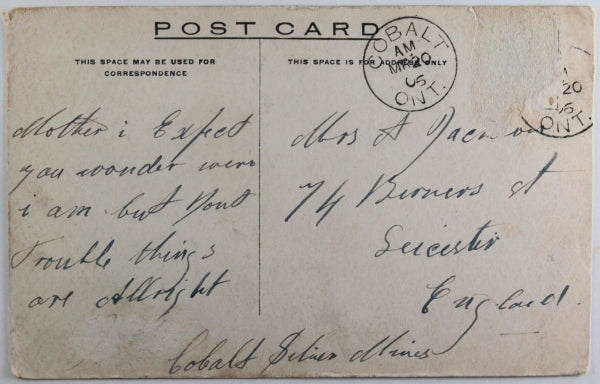 POST CARD
THIS SPACE MAY BE USED FOR
CORRESPONDENCE
THIS SPACE IS FOR ADDRESS ONLY
COBALT
AM
20
06
ONT.
20
06
ONT.
Mother i Expect
you wonder were
i am but Dont
Trouble things
are Allright
Mrs A Jackson
74 Berners st
Leicester
England.
Cobalt Silver Mines